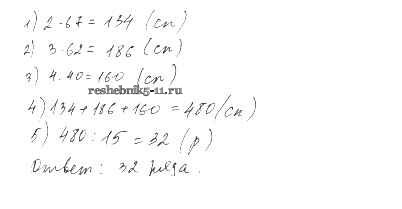 1) 2·67 = 134 (сп)
2) 3·62 = 186 (сп)
3) 4·40 = 160 (сп)
reshebnik5-11.ru
4) 134 + 186 + 160 = 480 (сп)
5) 480 : 15 = 32 (р)
Ответ: 32 ряда.